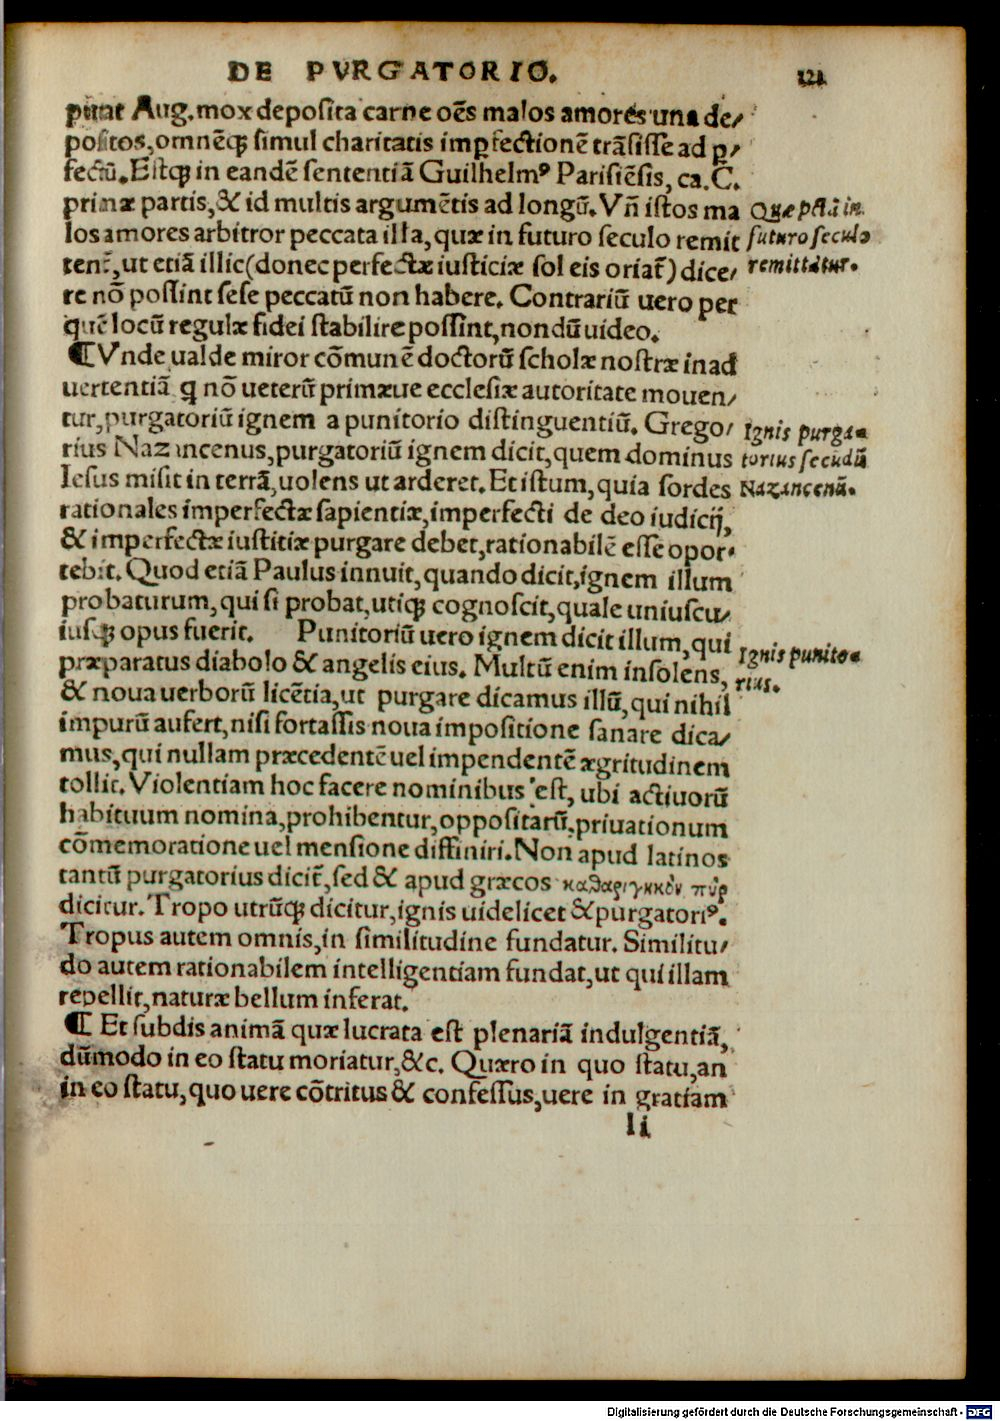 DE PVRGATORIO. 121
putat Aug. mox deposita carne oēs malos amores una de/
positos, omnēq; simul charitatis imperfectionē trāsisse ad p/
fectū. Estq; in eandē sententiā Guilhelmꝰ Parisiēsis, ca. C.
primæ partis, & id multis argumētis ad longū. Vñ istos ma
los amores arbitror peccata illa, quæ in futuro seculo remit
tent̄, ut etiā illic (donec perfectæ iusticiæ sol eis oriat̄) dice/
re nō possint sese peccatū non habere. Contrariū uero per
quē locū regulæ fidei stabilire possint, nondū uideo.
Quæ pctā in
futuro seculo
remittātur.
¶ Vnde ualde miror cōmunē doctorū scholæ nostræ inad
uertentiā q nō ueterū primæue ecclesiæ autoritate mouen/
tur, purgatoriū ignem a punitorio distinguentiū. Grego/
rius Nazancenus, purgatoriū ignem dicit, quem dominus
Iesus misit in terrā, uolens ut arderet. Et istum, quia sordes
rationales imperfectæ sapientiæ, imperfecti de deo iudicij,
& imperfectæ iustitiæ purgare debet, rationabilē esse opor/
tebit. Quod etiā Paulus innuit, quando dicit, ignem illum
probaturum, qui si probat, utiq; cognoscit, quale uniuscu/
iusq; opus fuerit. Punitoriū uero ignem dicit illum, qui
præparatus diabolo & angelis eius. Multū enim insolens,
& noua uerborū licētia, ut purgare dicamus illū, qui nihil
impurū aufert, nisi fortassis noua impositione sanare dica/
mus, qui nullam præcedentē uel impendentē ægritudinem
tollit. Violentiam hoc facere nominibus est, ubi actiuorū
habituum nomina, prohibentur, oppositarū, priuationum
cōmemoratione uel mensione diffiniri. Non apud latinos
tantū purgatorius dicit̄, sed & apud græcos πῦρ
dicitur. Tropo utrūq; dicitur, ignis uidelicet & purgatoriꝰ.
Tropus autem omnis, in similitudine fundatur. Similitu/
do autem rationabilem intelligentiam fundat, ut qui illam
repellit, naturæ bellum inferat.
Ignis purga-
torius secūdū
Nazancenū.
Ignis punito-
rius.
¶ Et subdis animā quæ lucrata est plenariā indulgentiā,
dūmodo in eo statu moriatur, &c. Quæro in quo statu, an
in eo statu, quo uere cōtritus & confessus, uere in gratiam
Ii
Digitalisierung gefördert durch die Deutsche Forschungsgemeinschaft - DFG